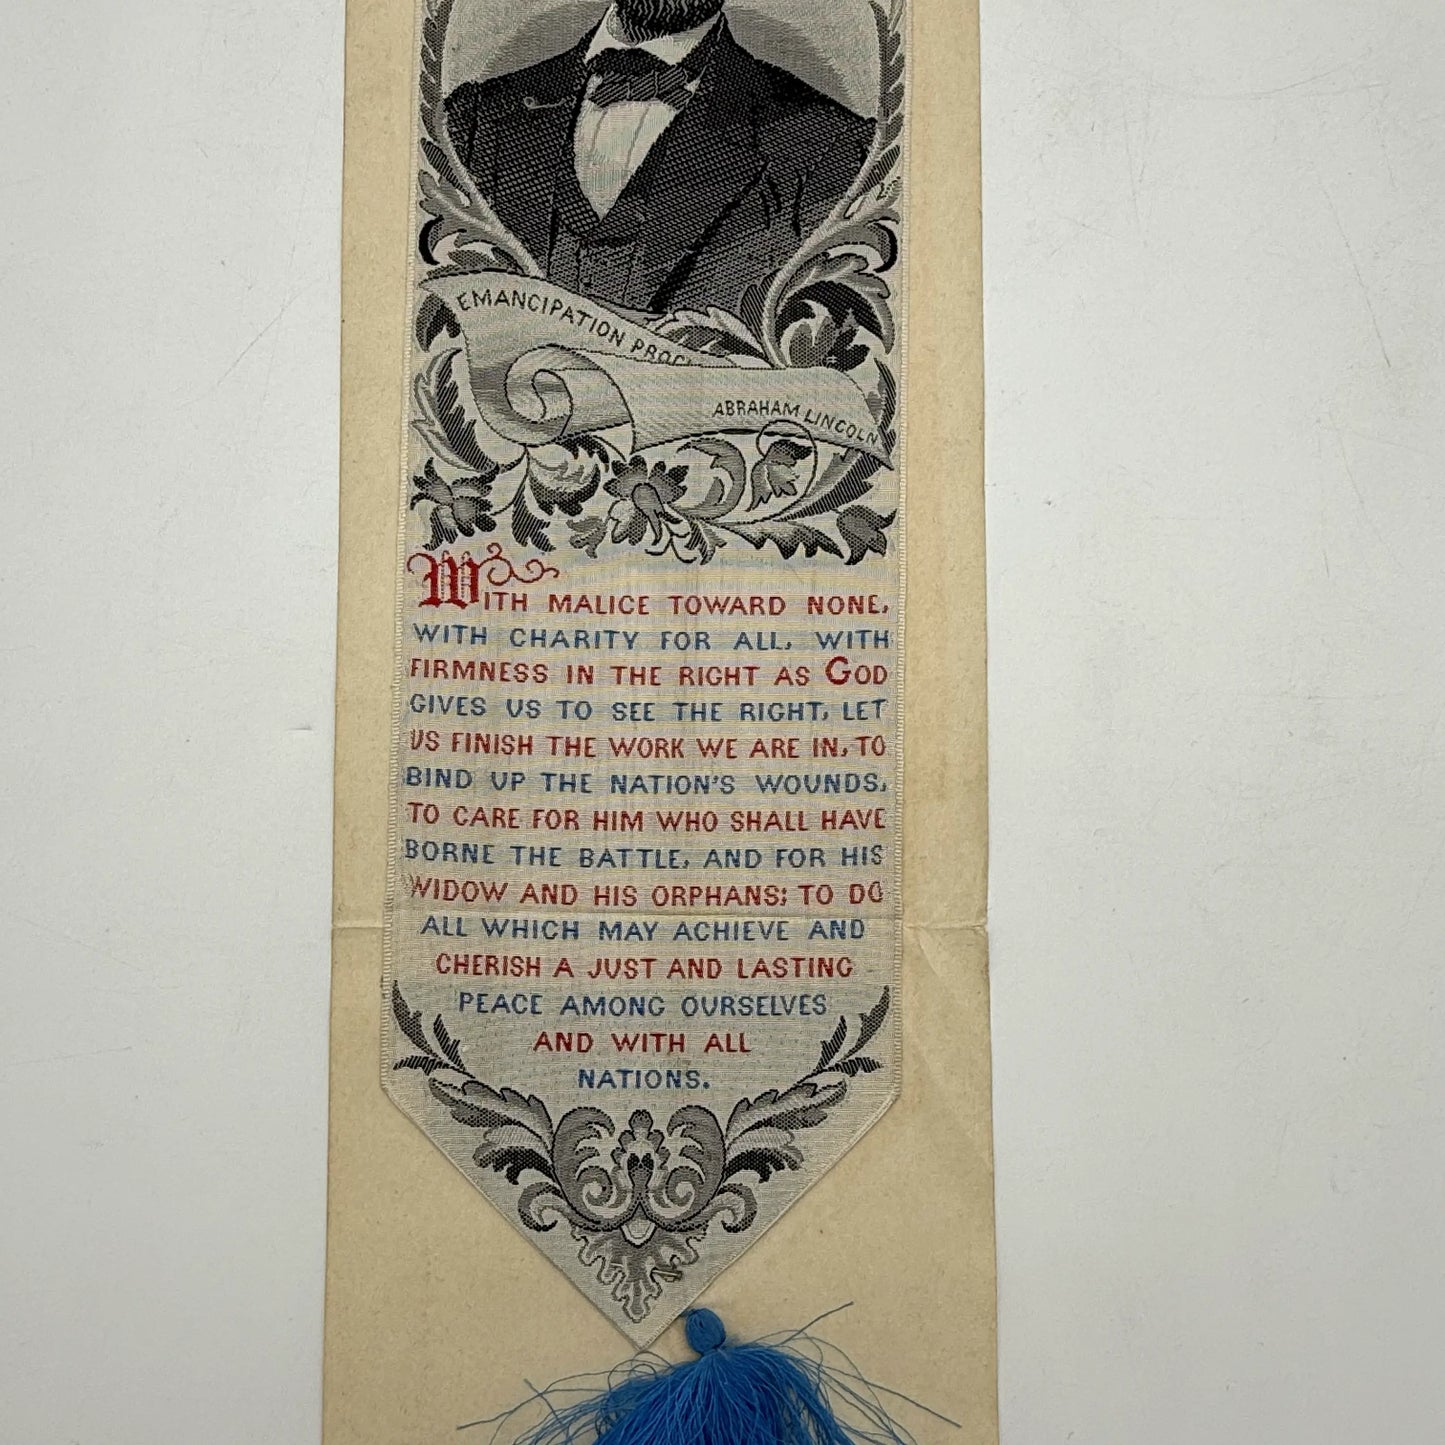 EMANCIPATION PROCL
ABRAHAM LINCOLN
WITH MALICE TOWARD NONE,
WITH CHARITY FOR ALL, WITH
FIRMNESS IN THE RIGHT AS GOD
GIVES US TO SEE THE RIGHT, LET
US FINISH THE WORK WE ARE IN, TO
BIND UP THE NATION'S WOUNDS,
TO CARE FOR HIM WHO SHALL HAVE
BORNE THE BATTLE, AND FOR HIS
WIDOW AND HIS ORPHANS; TO DO
ALL WHICH MAY ACHIEVE AND
CHERISH A JUST AND LASTING
PEACE AMONG OURSELVES
AND WITH ALL
NATIONS.